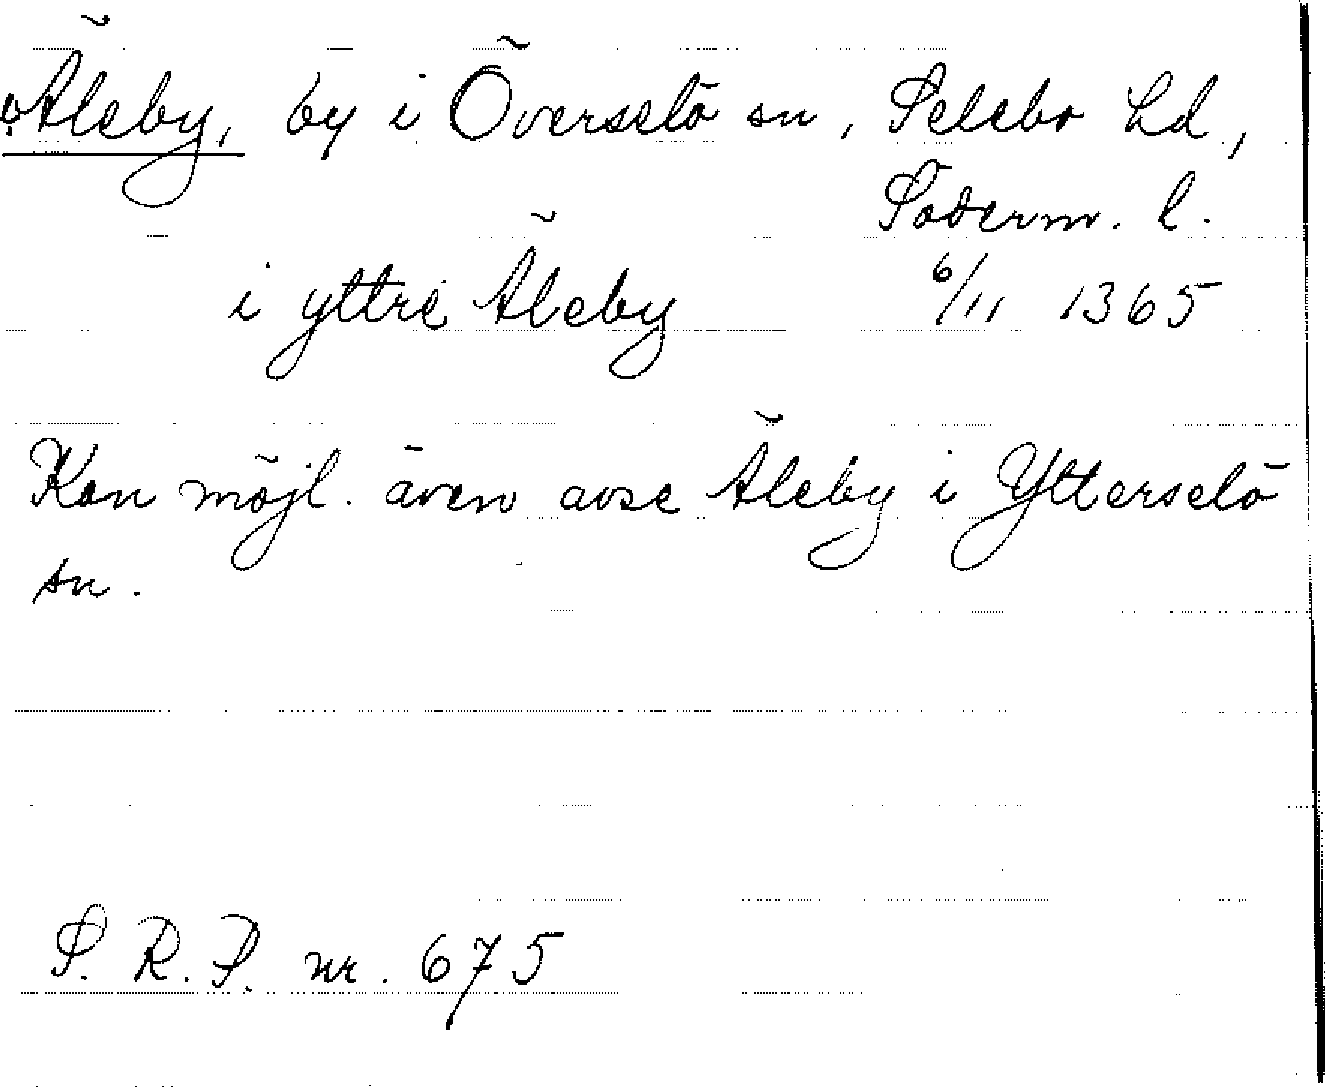 Äleby, by i Överselö sn, Selebo hd.,
Söderm. l.
i yttre Äleby 6/11 1365
Kan möjl. även avse Äleby i Ytterselö
sn.
S. R. P. nr. 675